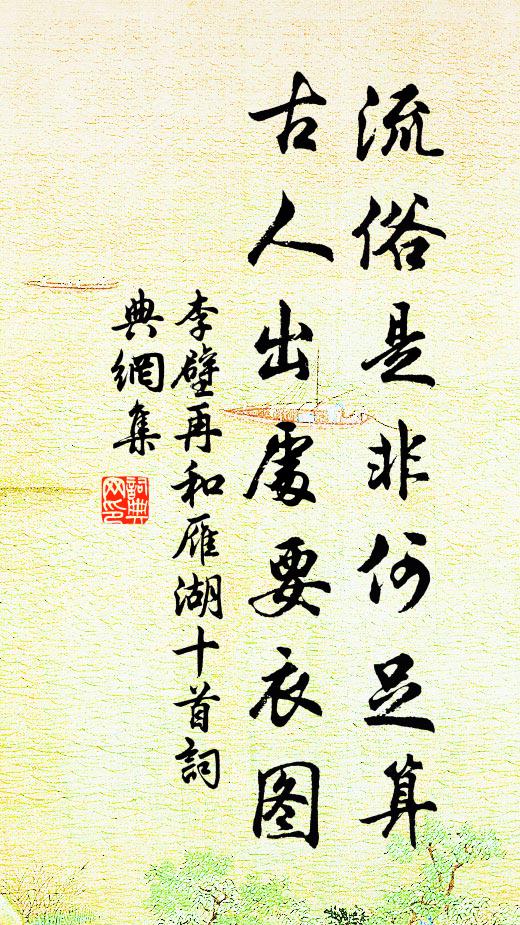 流俗是非何足算
古人出處要衣图
李壁再和雁湖十首詞
典網集
詞典
网印